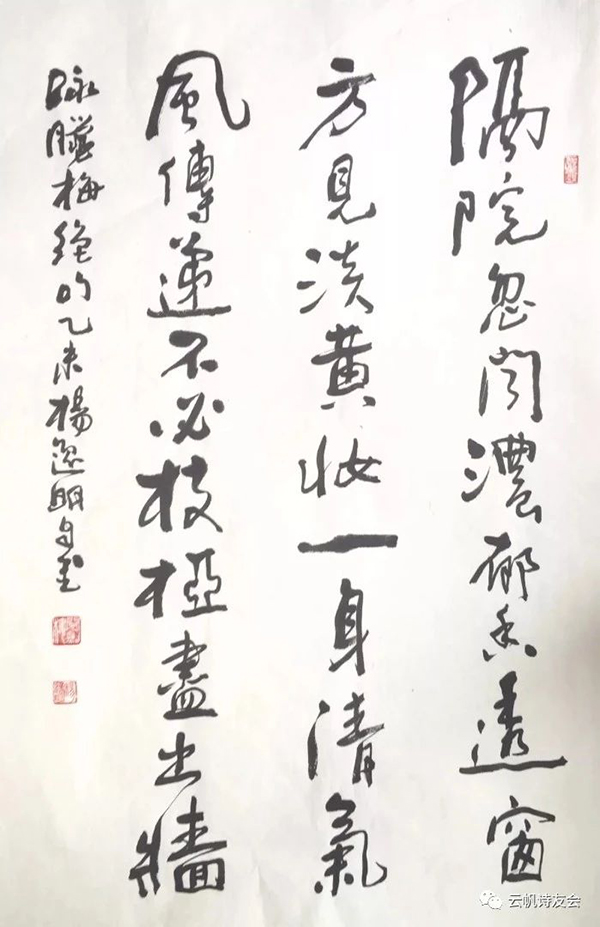 隔院忽闻濃郁香透窗
方見淡黄妆一身清氣
風傳遞不必枝椏盡出牆
詠臘梅絶句乙未楊逸明自書
云帆诗友会